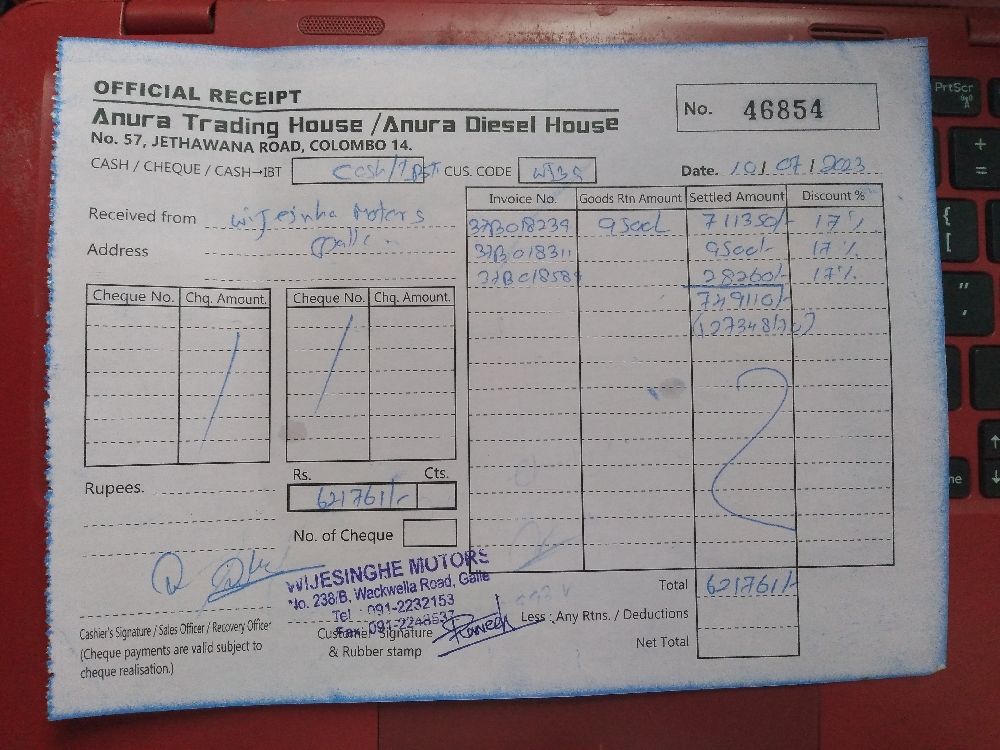 OFFICIAL RECEIPT
No. 46854
Anura Trading House / Anura Diesel House
No. 57, JETHAWANA ROAD, COLOMBO 14.
CASH / CHEQUE / CASH→IBT Cash/ CUS. CODE Date. 10/07/2023
Received from Motors
Address
Invoice No. Goods Rtn Amount Settled Amount Discount %
37B018239 9500/- 711350/- 17%
37B018311 9500/- 17%
37B018587 28260/- 17%
749110/-
Cheque No. Chq. Amount. Cheque No. Chq. Amount.
Rs. Cts.
Rupees. 621761/-
No. of Cheque
WIJESINGHE MOTORS
No. 238/B, Wackwella Road, Galle
Tel : 091-2232153
Fax: 091-2248537
Total 621761/-
Less : Any Rtns. / Deductions
Net Total
Cashier's Signature / Sales Officer / Recovery Officer
(Cheque payments are valid subject to
cheque realisation.)
Customer Signature
& Rubber stamp
PrtScr